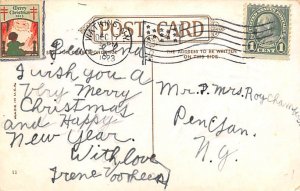 Merry Christmas
POST CARD
DEC
1923
THE ADDRESS TO BE WRITTEN
ON THIS SIDE
1 CENT 1
Dear
I wish you a
Very Merry
Christmas
and Happy
New Year.
With love
Irene Voorhees
Mr. & Mrs. Roy
Penn Yan.
N.Y.